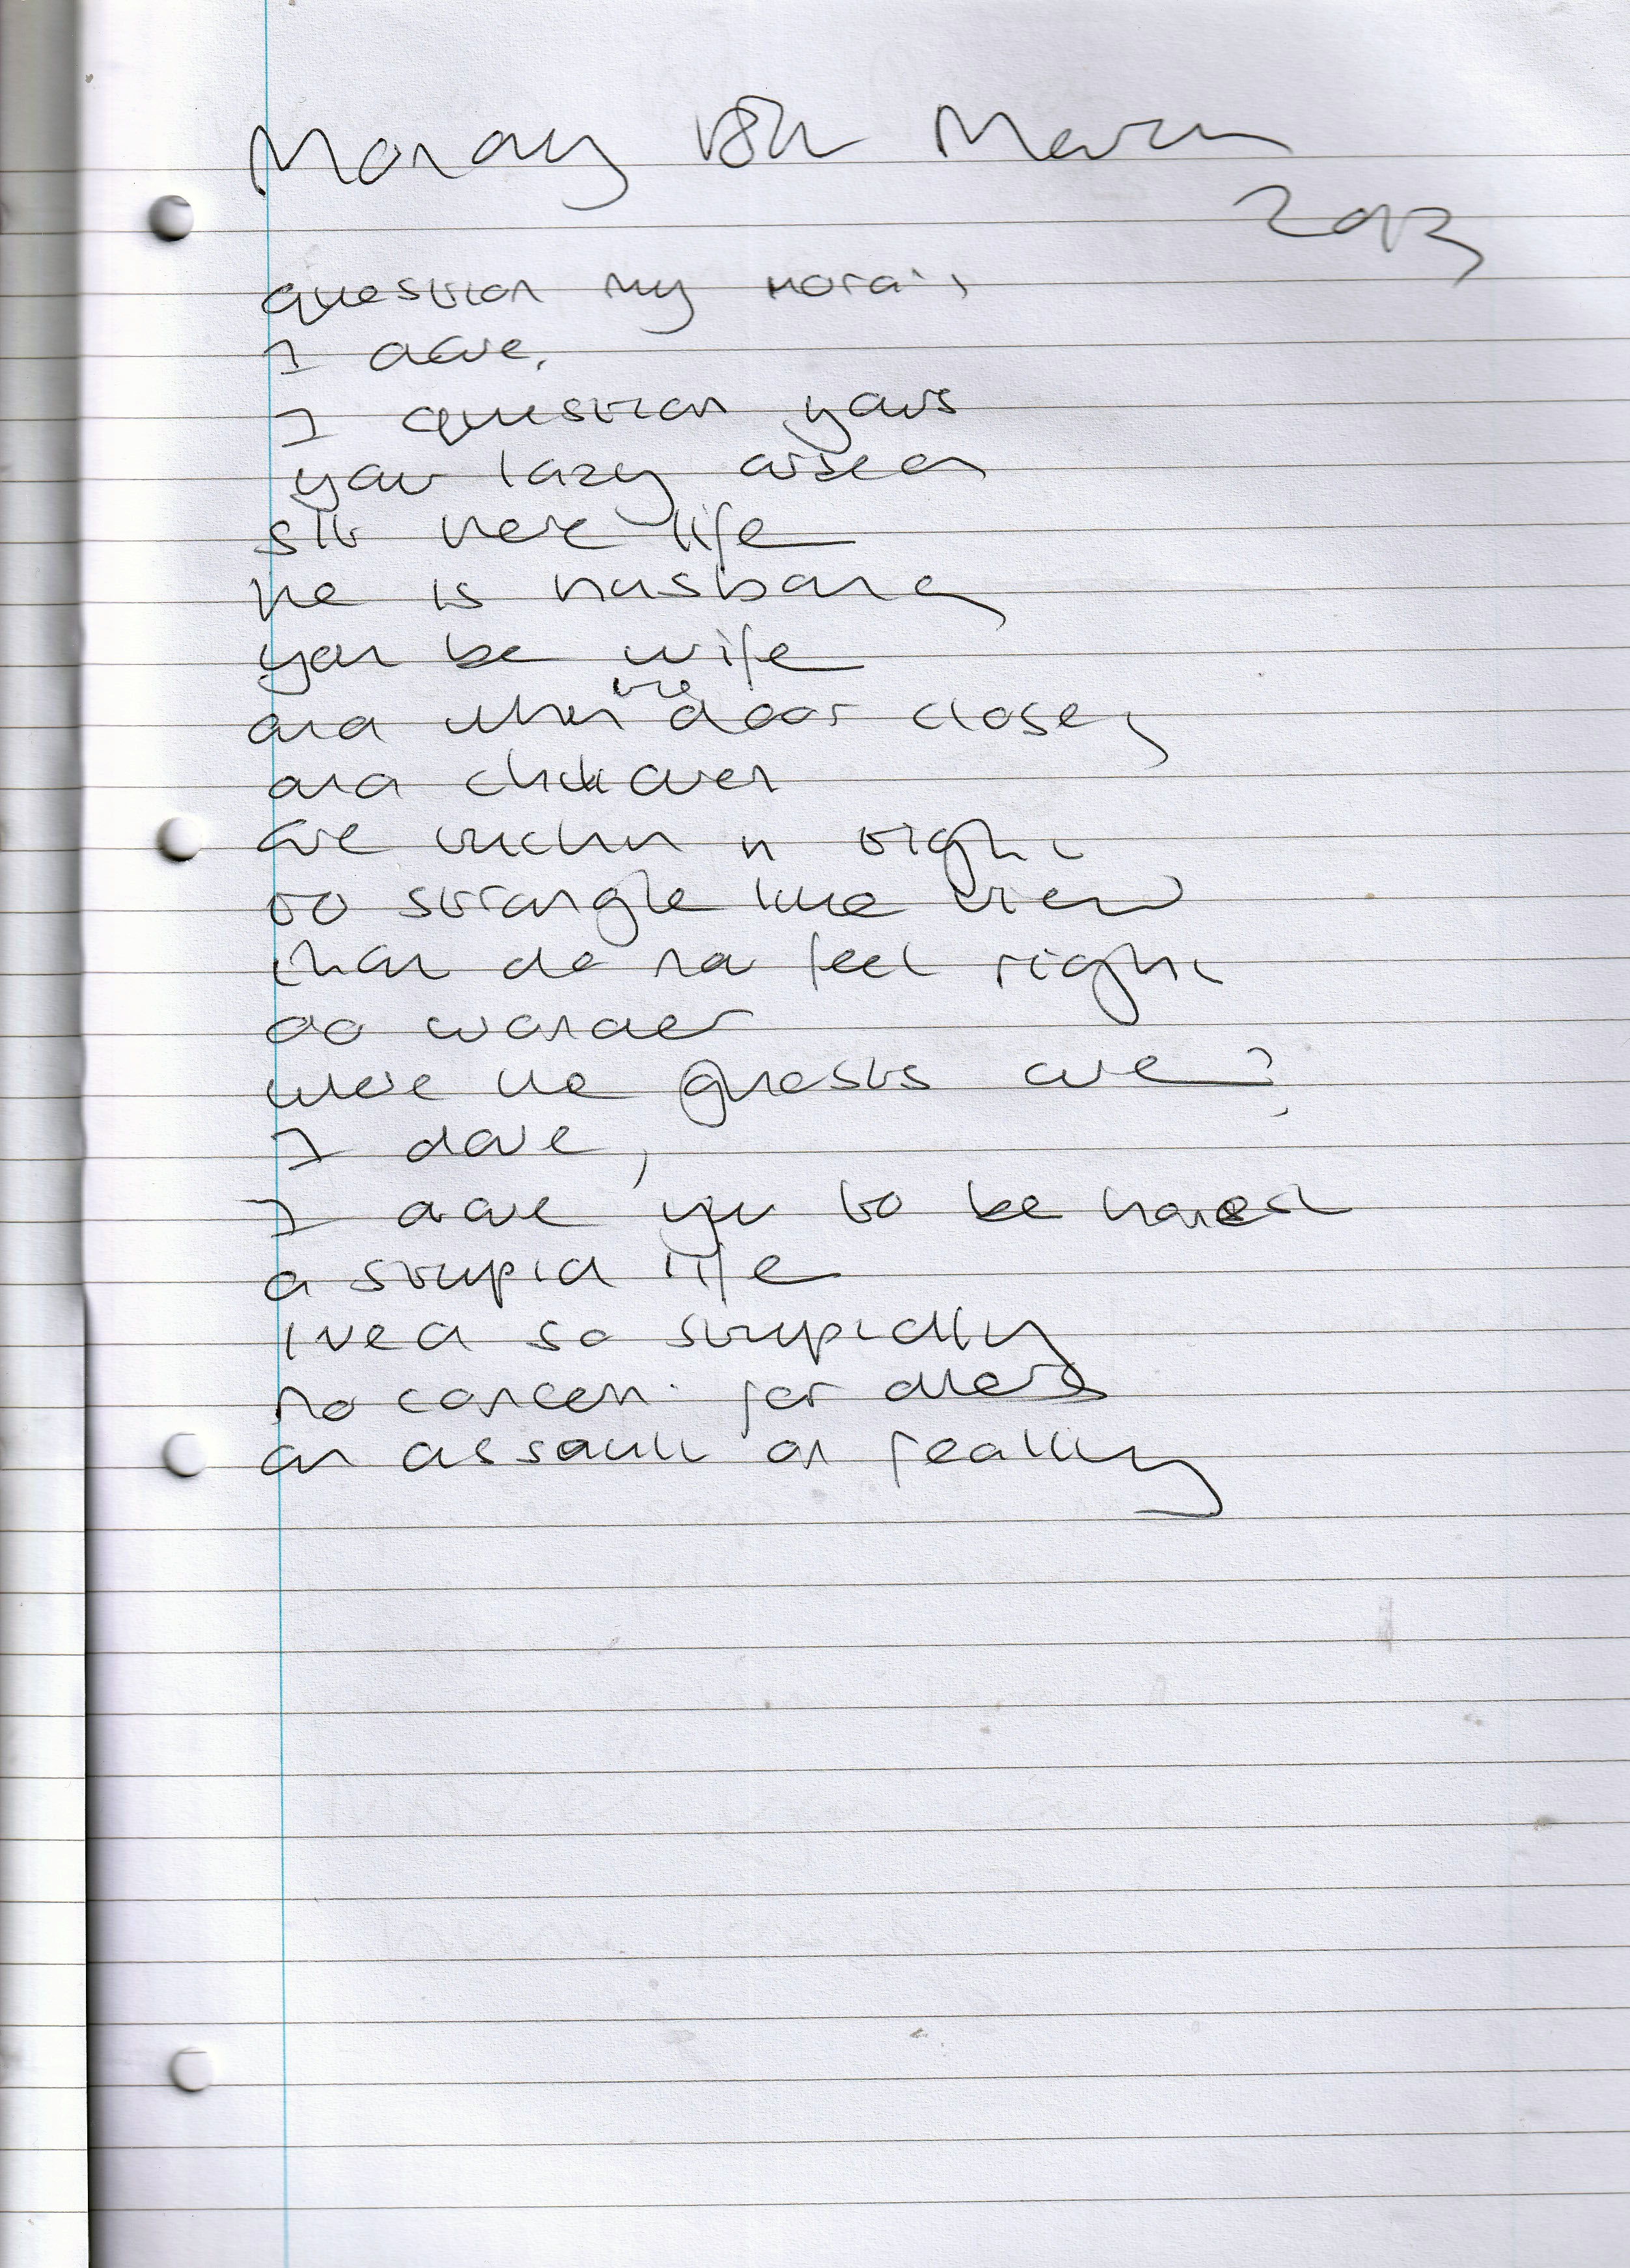 Monday 18th March
2013
question my morals
I dare,
I question yours
your lazy
sit here life
he is husband
you be wife
and when the door closes
and children
are tucken n tight
to strangle like view
that do na feel right
do wonder
where the guests are?
I dare,
I dare you to be honest
a stupid life
lived so stupidly
no concern for others
an assault on reality